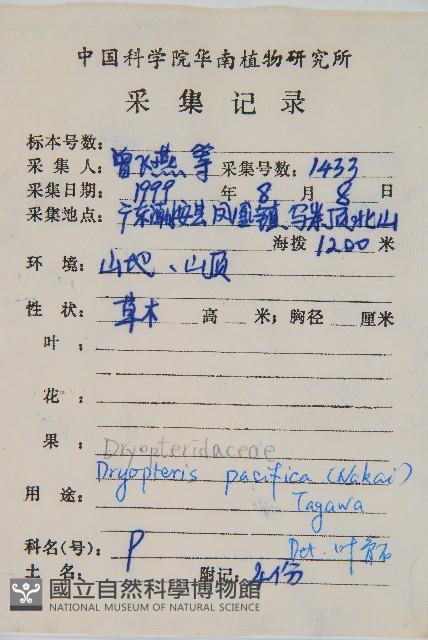 中国科学院华南植物研究所
采集记录
标本号数：
采集人：曾飞燕 等 采集号数：1433
采集日期：1999 年 8 月 8 日
采集地点：广东潮安县凤凰镇、乌岽顶北山
海拨 1200 米
环境：山地、山顶
性状：草本 高 米；胸径 厘米
叶：
花：
果：Dryopteridaceae
Dryopteris pacifica (Nakai)
用途： Tagawa
科名(号)：P Det. 叶
土名： 附记： 份
國立自然科學博物館
NATIONAL MUSEUM OF NATURAL SCIENCE